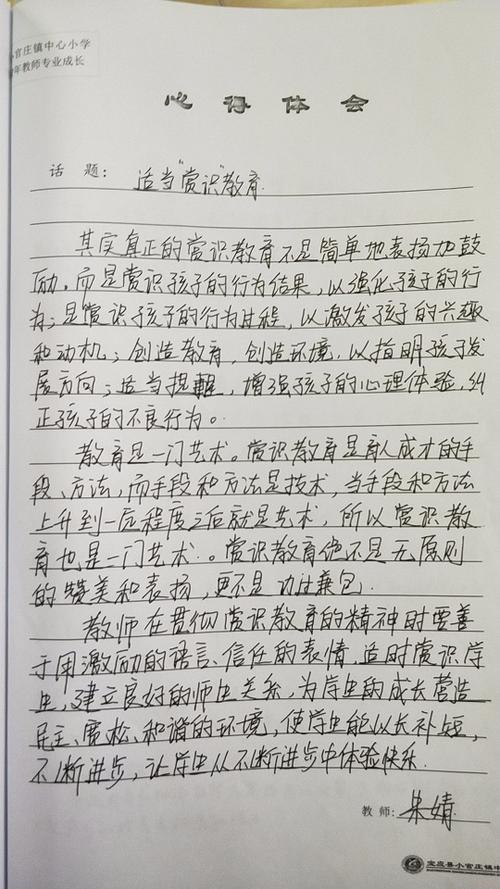 小官庄镇中心小学
年教师专业成长
心得体会
话 题: 适当"赏识"教育.
其实真正的赏识教育不是简单地表扬加鼓
励,而是赏识孩子的行为结果,以强化孩子的行
为;是赏识孩子的行为过程,以激发孩子的兴趣
和动机;创造教育,创造环境,以指明孩子发
展方向;适当提醒,增强孩子的心理体验,纠
正孩子的不良行为。
教育是一门艺术。赏识教育是育人成才的手
段、方法,而手段和方法是技术,当手段和方法
上升到一定程度之后就是艺术,所以赏识教
育也是一门艺术。赏识教育绝不是无原则
的赞美和表扬,更不是
教师在贯彻赏识教育的精神时要善
于用激励的语言、信任的表情,适时赏识学
生,建立良好的师生关系,为学生的成长营造
民主、宽松、和谐的环境,使学生能以长补短,
不断进步,让学生从不断进步中体验快乐.
教 师: 朱婧
宝应县小官庄镇中